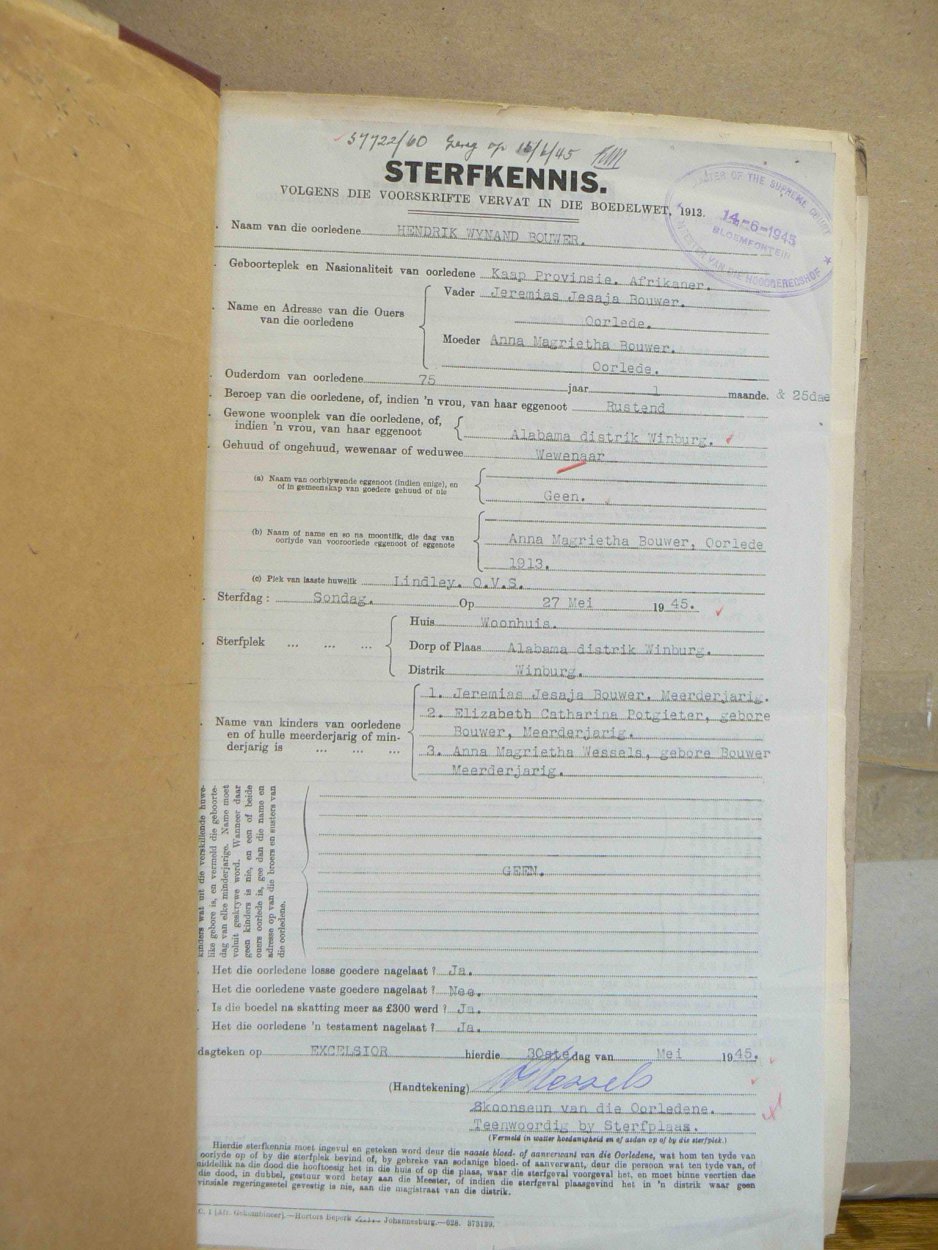 57722/60 Gereg op 16/6/45
STERFKENNIS.
VOLGENS DIE VOORSKRIFTE VERVAT IN DIE BOEDELWET, 1913.
MASTER OF THE SUPREME COURT
14-6-1945
BLOEMFONTEIN
MEESTER VAN DIE HOOGGEREGSHOF
Naam van die oorledene HENDRIK WYNAND BOUWER.
Geboorteplek en Nasionaliteit van oorledene Kaap Provinsie. Afrikaner.
Name en Adresse van die Ouers van die oorledene
Vader Jeremias Jesaja Bouwer.
Oorlede.
Moeder Anna Magrietha Bouwer.
Oorlede.
Ouderdom van oorledene 75 jaar 1 maande. & 25dae
Beroep van die oorledene, of, indien 'n vrou, van haar eggenoot Rustend
Gewone woonplek van die oorledene, of,
indien 'n vrou, van haar eggenoot Alabama distrik Winburg.
Gehuud of ongehuud, wewenaar of weduwee Wewenaar
(a) Naam van oorblywende eggenoot (indien enige), en
of in gemeenskap van goedere gehuud of nie Geen.
(b) Naam of name en so na moontlik, die dag van
oorlyde van vooroorlede eggenoot of eggenote Anna Magrietha Bouwer, Oorlede
1913.
(c) Plek van laaste huwelik Lindley. O.V.S.
Sterfdag: Sondag. Op 27 Mei 1945.
Sterfplek ... ... ...
Huis Woonhuis.
Dorp of Plaas Alabama distrik Winburg.
Distrik Winburg.
Name van kinders van oorledene
en of hulle meerderjarig of min-
derjarig is ... ... ...
1. Jeremias Jesaja Bouwer. Meerderjarig.
2. Elizabeth Catharina Potgieter, gebore
Bouwer, Meerderjarig.
3. Anna Magrietha Wessels, gebore Bouwer
Meerderjarig.
kinders wat uit die verskillende huwe-
like gebore is, en vermeld die geboorte-
dag van elke minderjarige. Name moet
voluit geskrywe word. Wanneer daar
geen kinders is nie, en een of beide
ouers oorlede is, gee dan die name en
adresse op van die broers en susters van
die oorledene.
GEEN.
Het die oorledene losse goedere nagelaat? Ja.
Het die oorledene vaste goedere nagelaat? Nee.
Is die boedel na skatting meer as £300 werd? Ja.
Het die oorledene 'n testament nagelaat? Ja.
dagteken op EXCELSIOR hierdie 30ste dag van Mei 1945.
(Handtekening) Wessels
Skoonseun van die Oorledene.
Teenwoordig by Sterfplaas.
(Vermeld in watter hoedanigheid en of asdan op of by die sterfplek.)
Hierdie sterfkennis moet ingevul en geteken word deur die naaste bloed- of aanverwant van die Oorledene, wat hom ten tyde van
oorlyde op of by die sterfplek bevind of, by gebreke van sodanige bloed- of aanverwant, deur die persoon wat ten tyde van, of
middellik na die dood die hooftoesig het in die huis of op die plaas, waar die sterfgeval voorgeval het, en moet binne veertien dae
die dood, in dubbel, gestuur word hetsy aan die Meester, of indien die sterfgeval plaasgevind het in 'n distrik waar geen
vinsiale regeringsetel gevestig is nie, aan die magistraat van die distrik.
C. 1 [Afr. Gekombineer).—Hortors Beperk Johannesburg.—628. 373199.